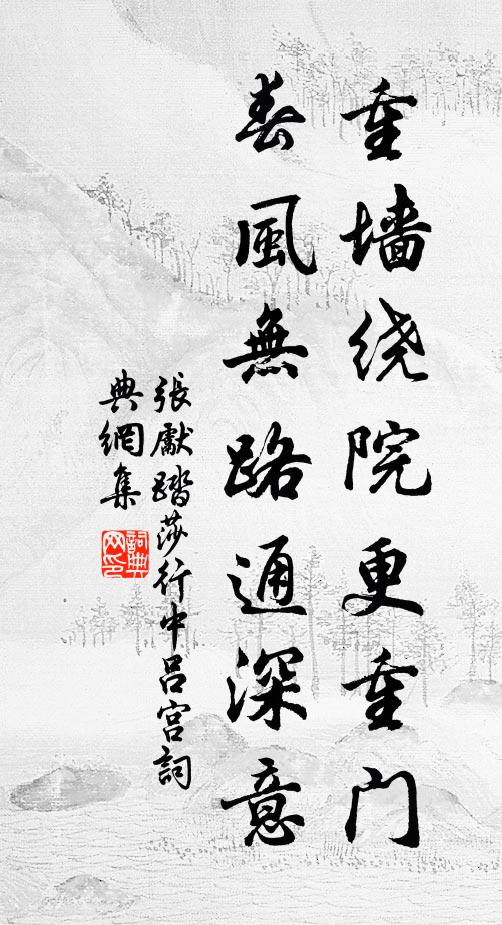 重墙绕院更重门
春風無路通深意
張獻踏莎行中吕宫詞
典網集
詞典网印